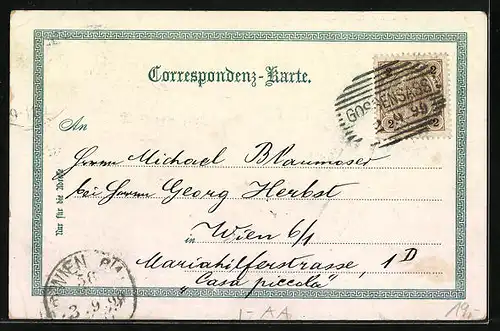 Correspondenz-Karte.
2 2
GOSSENSASS
9 99
2 2
An
Herrn Michael Blaumoser
bei Herrn Georg Herbst
in Wien 6/1
Mariahilferstrasse, 1 D
„Casa piccola"
Nur für die Adresse.
WIEN
3 9 99
I-AA
19,-